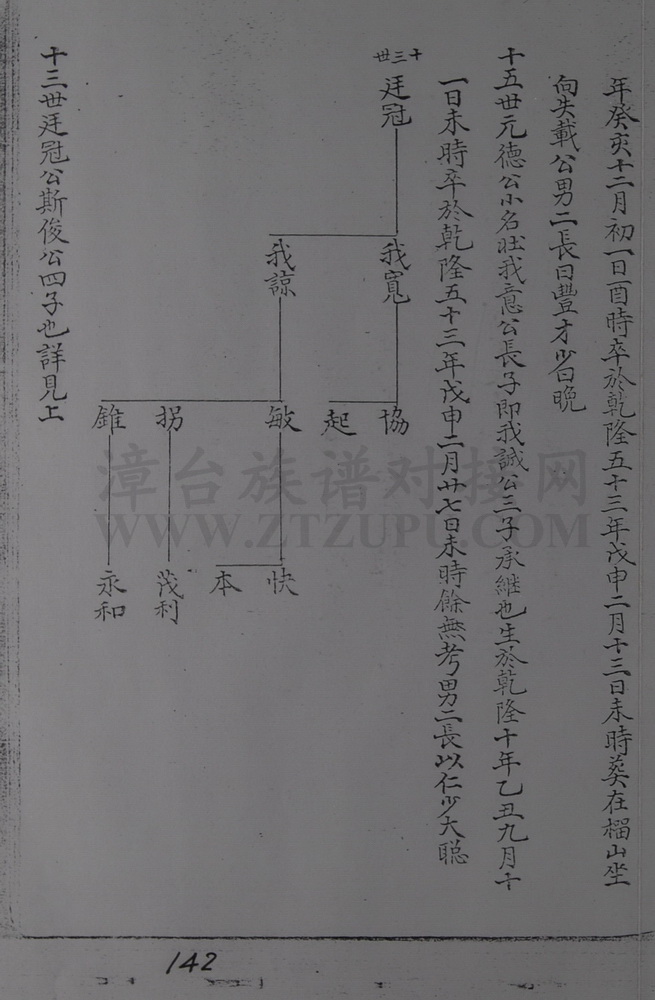 年癸亥十二月初一日酉時卒於乾隆五十三年戊申二月十三日未時葬在榴山坐
向失載公男二長曰豐才少曰晩
十五世元德公小名壯我意公長子即我誠公三子承継也生於乾隆十年乙丑九月十
一日未時卒於乾隆五十三年戊申二月廿七日未時餘無考男二長以仁少大聰
十三世
廷冠
我寬
我諒
協
起
敏
拐
錐
快
本
茂利
永和
十三世廷冠公斯俊公四子也詳見上
漳台族谱对接网
WWW.ZTZUPU.COM
142